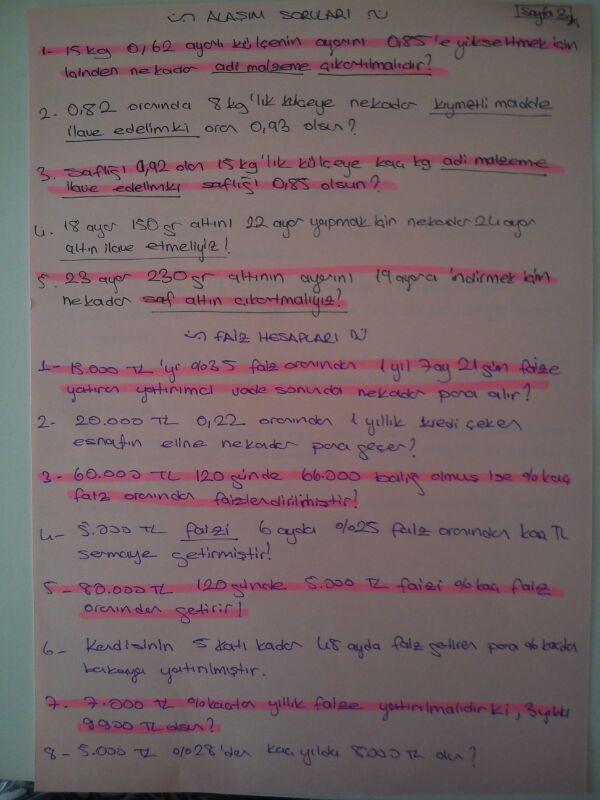 ALAŞIM SORULARI [Sayfa 2]
1- 15 kg 0,62 ayarlı külçenin ayarını 0,85'e yükseltmek için
içinden ne kadar adi malzeme çıkartılmalıdır?
2. 0,82 oranında 8 kg'lık külçeye ne kadar kıymetli madde
ilave edelimki oran 0,93 olsun?
3. Saflığı 0,92 olan 15 kg'lık külçeye kaç kg adi malzeme
ilave edelimki saflığı 0,85 olsun?
4. 18 ayar 150 gr altını 22 ayar yapmak için nekadar 24 ayar
altın ilave etmeliyiz!
5. 23 ayar 230 gr altının ayarını 19 ayara indirmek için
nekadar saf altın çıkartmalıyız?
FAİZ HESAPLARI
1- 15.000 TL'yi %35 faiz oranından 1 yıl 7 ay 21 gün faize
yatıran yatırımcı vade sonunda nekadar para alır?
2- 20.000 TL 0,22 oranından 1 yıllık kredi çeken
esnafın eline nekadar para geçer?
3- 60.000 TL 120 günde 66.000 balig olmuş ise % kaç
faiz oranından faizlendirilmiştir!
4- 5.000 TL faizi 6 ayda %25 faiz oranından kaç TL
sermaye getirmiştir!
5- 80.000 TL 120 günde 5.000 TL faizi % kaç faiz
oranından getirir!
6- Kendisinin 5 katı kadar 48 ayda faiz getiren para % kaçdan
bankaya yatırılmıştır.
7. 7.000 TL % kaçtan yıllık faize yatırılmalıdır ki, 3 yılda
9900 TL olsun?
8- 5.000 TL %28'den kaç yılda 8000 TL olur?